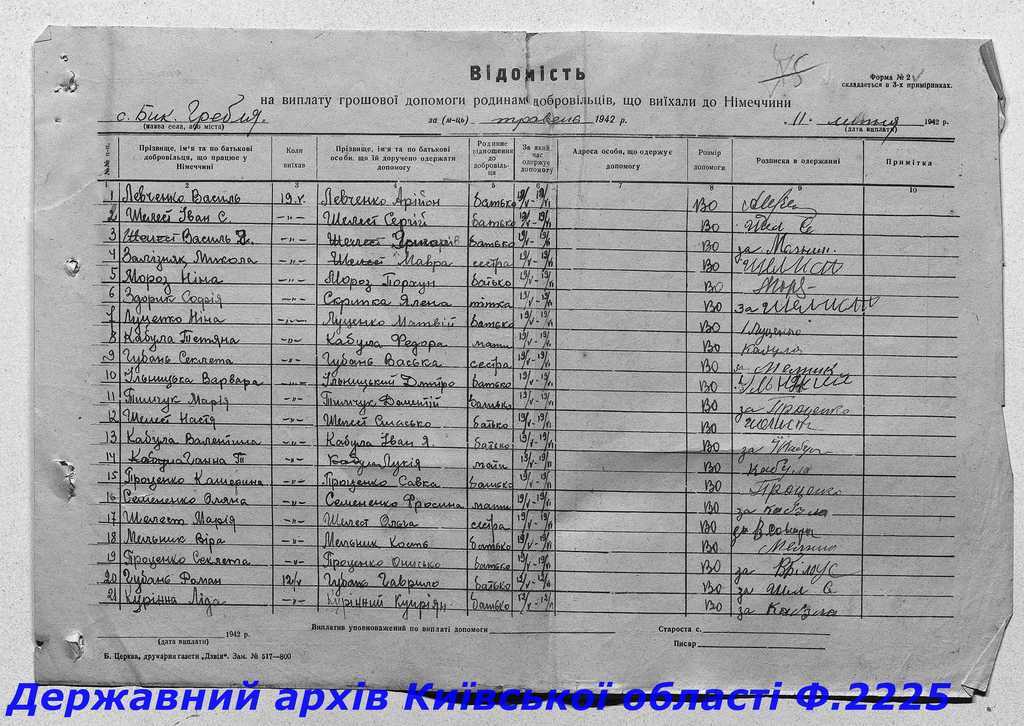 75
Форма № 2
складається в 3-х примірниках.
Відомість
на виплату грошової допомоги родинам добровільців, що виїхали до Німеччини
с. Бик. Гребля.
(назва села, або міста)
за (м-ць) травень 1942 р.
11 липня 1942 р.
(дата виплати)
№№ п-п. Прізвище, ім'я та по батькові добровільця, що працює у Німеччині Коли виїхав Прізвище, ім'я та по батькові особи, що їй доручено одержати допомогу Родинне відношення до добровільця За який час одержує допомогу Адреса особи, що одержує допомогу Розмір допомоги Розписка в одержанні Примітка
1 2 3 4 5 6 7 8 9 10
1 Левченко Василь 19.V. Левченко Арійон батько 19/V - 19/VI ВО
2 Шелест Іван С. -"- Шелест Сергій батько 19/V - 19/VI ВО Шел С
3 Шелест Василь -"- Шелест Григорів батько 19/V - 19/VI ВО за
4 Залізняк Микола -"- Шелест Мавра сестра 19/V - 19/VI ВО
5 Мороз Ніна -"- Мороз батько 19/V - 19/VI ВО
6 Здорик Софія -"- Скрипка Ялена тітка 19/V - 19/VI ВО за
7 Луценко Ніна -"- Луценко Матвій батько 19/V - 19/VI ВО Луценко
8 Кабула Тетяна -"- Кабула Федора мати 19/V - 19/VI ВО Кабула
9 Губань Секлета -"- Губань Васька сестра 19/V - 19/VI ВО Мельник
10 Ільницька Варвара -"- Ільницький Дмітро батько 19/V - 19/VI ВО
11 Тимчук Марія -"- Тимчук батько 19/V - 19/VI ВО за Проценко
12 Шелест Настя -"- Шелест батько 19/V - 19/VI ВО
13 Кабула Валентина -"- Кабула Іван Я. батько 19/V - 19/VI ВО за
14 Кабула Ганна Т -"- Кабула Лукія мати 19/V - 19/VI ВО Кабула
15 Проценко Катерина -"- Проценко Савка батько 19/V - 19/VI ВО Проценко
16 Семененко Оляна -"- Семененко Фросина мати 19/V - 19/VI ВО за Кабула
17 Шелест Марія -"- Шелест Ольга сестра 19/V - 19/VI ВО
18 Мельник Віра -"- Мельник Кость батько 19/V - 19/VI ВО
19 Проценко Секлета -"- Проценко Онисько батько 19/V - 19/VI ВО за
20 Губань Роман 12/V Губань Гаврило батько 12/V - 12/VI ВО за Шел С
21 Курінна Ліда -"- Курінний Купріян батько 12/V - 12/VI ВО за Кабула
1942 р.
(дата виплати)
Виплатив уповноважений по виплаті допомоги
Староста с.
Писар
Б. Церква, друкарня газети „Дзвін“. Зам. № 517—800
Державний архів Київської області Ф.2225